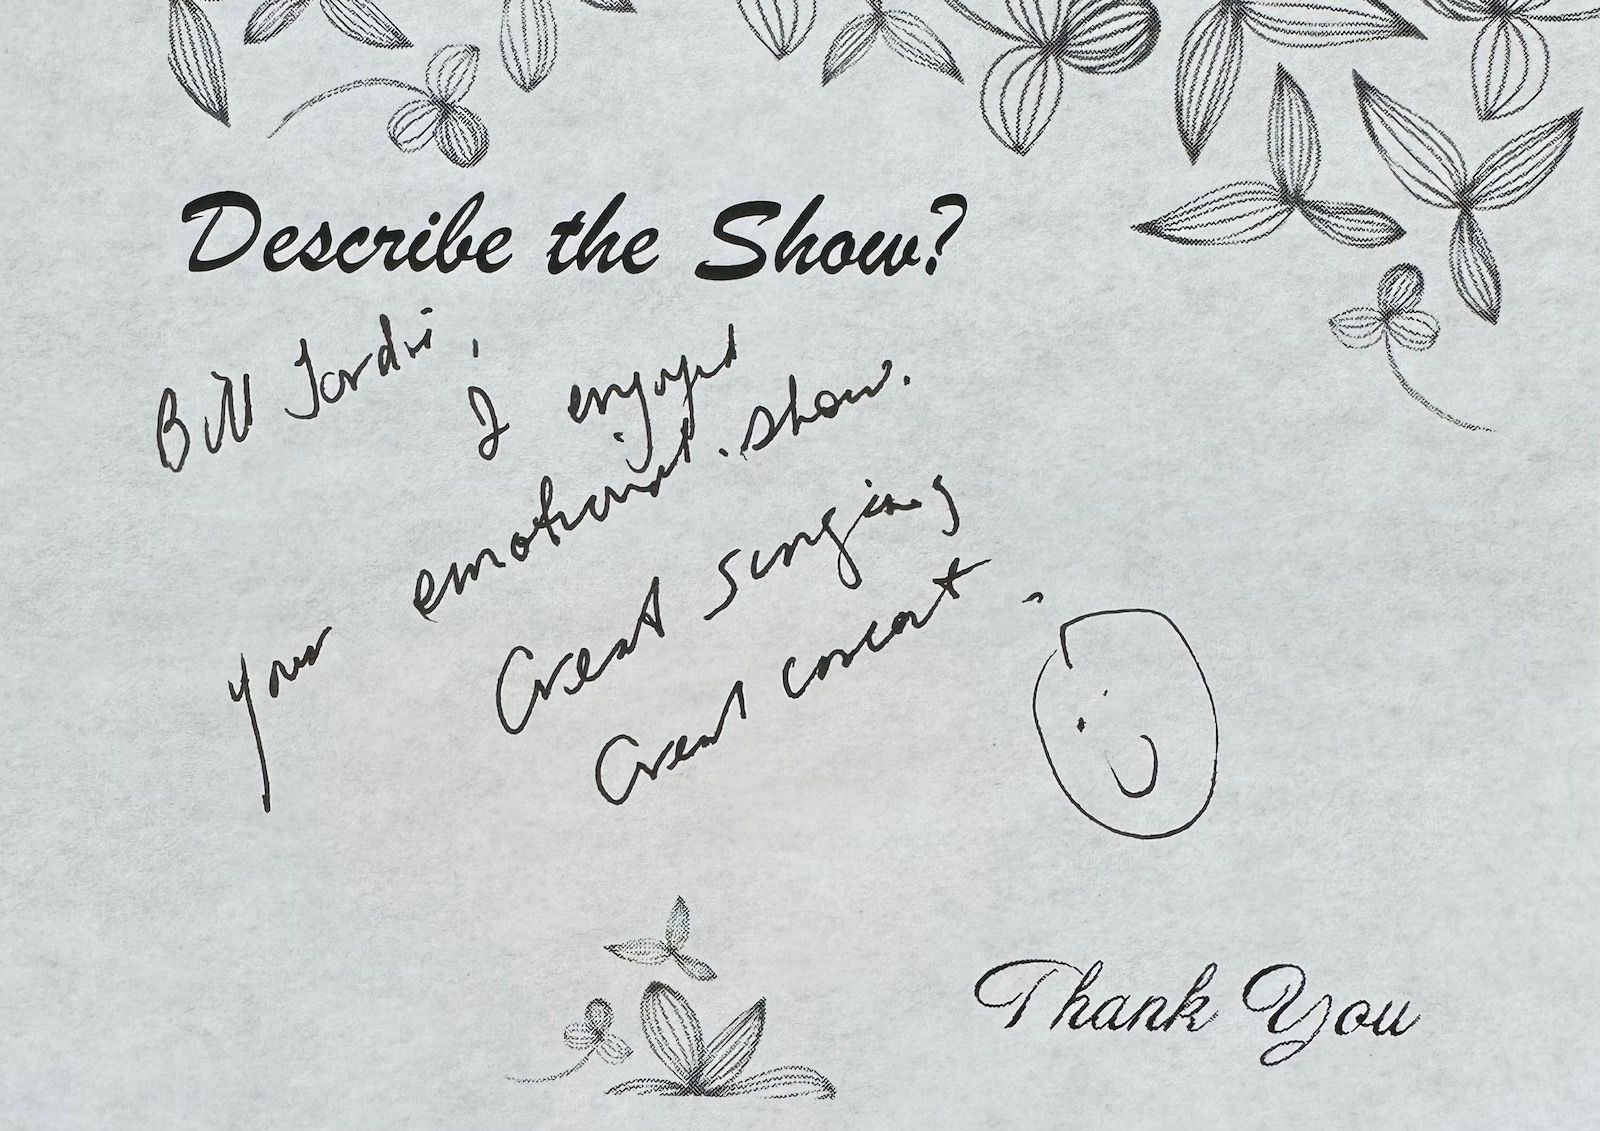 Describe the Show?
Bill Jardri,
I enjoyed
your emotional show.
Great singing
Great concert
Thank You